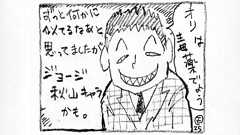 オリは
主薬でよう
ずっと何かに
似てるなあと
思ってましたが
ジョージ
秋山キャラ
かも。